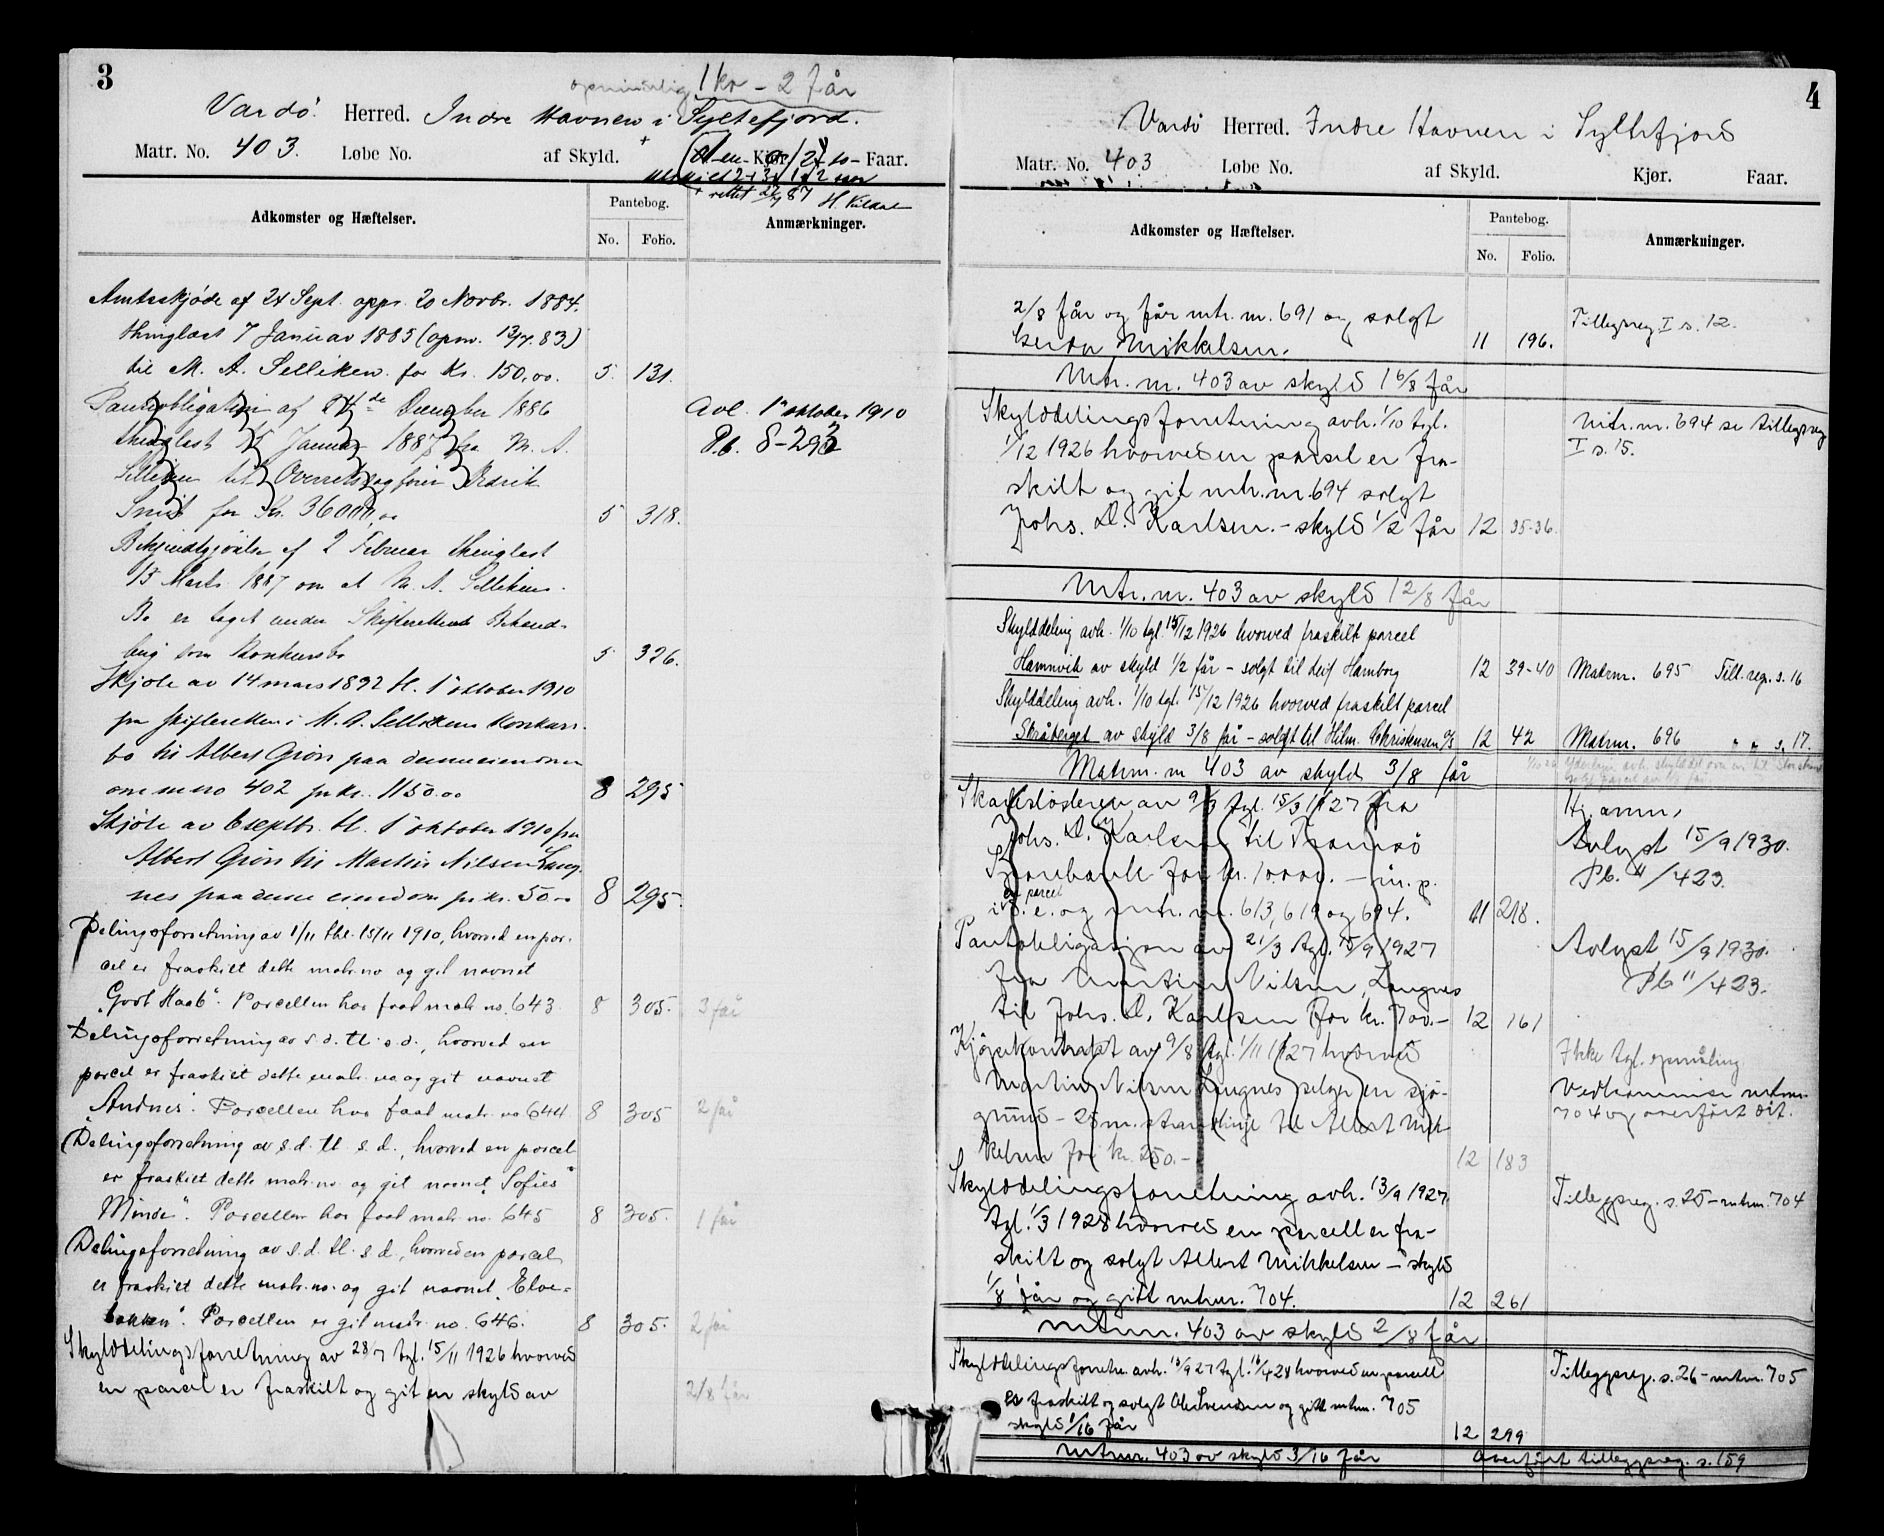 3
oprindelig 1 kr - 2 får
Vardø Herred. Indre Havnen i Syltefjord.
Matr. No. 403. Løbe No. af Skyld. Kjør Faar.
rettet 87 H.
Adkomster og Hæftelser. Pantebog. No. Folio. Anmærkninger.
Amtsskjøde af 24 Sept. appr. 20 Novbr. 1884.
thinglæst 7 Januar 1885 (opm. 13/7.83)
til M. A. Selliken for Kr. 150,00. 5. 131.
Panteobligation af December 1886 Avl. 1' oktober 1910
thinglæst 15 Januar 1887 fra M. A. Pb. 8-292
Selliken til Overretssagfører Fredrik
Smit for Kr. 36000,00 5 318.
Bekjendtgjørelse af 2 Februar thinglæst
15 Marts 1887 om at M. A. Sellikens
Bo er taget under Skifterettens Behand-
ling som Konkursbo 5 326.
Skjøte av 14 mars 1892 tl. 1' oktober 1910
fra skifteretten i M. A. Sellikens Konkurs-
bo til Albert Grön paa denne eiendom
om mno 402 for kr. 1150.00 8 295
Skjøte av 6 septbr. tl. 1' oktober 1910 fra
Albert Grön til Martin Nilsen Lang-
nes paa denne eiendom for kr. 50.- 8 295.
Delingsforretning av 1/11 thl. 15/11 1910, hvorved en par-
cel er fraskilt dette matr. no og git navnet
"Godt Haab". Parcellen har faat matr. no. 643. 8 305. 3 får
Delingsforretning av s.d. tl. s.d., hvorved en
parcel er fraskilt dette matr. no og git navnet
"Andnes". Parcellen har faat matr. no 644. 8 305 2 får
Delingsforretning av s.d. tl. s.d., hvorved en parcel
er fraskilt dette matr. no. og git navnet "Sofies
Minde". Parcellen har faat matr. no. 645 8 305. 1 får
Delingsforretning av s.d. tl. s.d., hvorved en parcel
er fraskilt dette matr. no. og git navnet "Elve-
bakken". Parcellen er git matr. no. 646. 8 305. 2 får
Skylddelingsforretning av 28/7 tgl. 15/11 1926 hvorved
en parcel er fraskilt og git en skyld av 2/8 får
4
Vardø Herred. Indre Havnen i Syltefjord
Matr. No. 403 Løbe No. af Skyld. Kjør. Faar.
Adkomster og Hæftelser. Pantebog. No. Folio. Anmærkninger.
2/8 får og får mtr. nr. 691 og solgt Tillegsreg I s. 12.
Gerda Mikkelsen. 11 196.
Mtr. nr. 403 av skyld 1 6/8 får
Skylddelingsforretning avh. 1/10 tgl. Mtr. nr. 694 se tillegsreg
1/12 1926 hvorved en parsel er fra- I s. 15.
skilt og git mtr. nr. 694 solgt
Johs. D. Karlsen. - skyld 1/2 får 12 35-36.
Mtr. nr. 403 av skyld 1 2/8 får
Skylddeling avh. 1/10 tgl. 15/12 1926 hvorved fraskilt parcel
Hamnvik av skyld 1/2 får - solgt til Leif Hamborg 12 39-40 Matrnr. 695 Till. reg. s. 16
Skylddeling avh. 1/10 tgl. 15/12 1926 hvorved fraskilt parcel
Skråberget av skyld 3/8 får - solgt til Hilm. Christensen A/S 12 42 Matrnr. 696 " " s. 17.
Matrnr. nr 403 av skyld 3/8 får
Skadesløsbrev av 9/3 tgl. 15/3 1927 fra Hj. anm.
Johs. D. Karlsen til Tromsø Avlyst 15/9 1930.
Sparebank for kr. 10000. - m. p. Pb. 11/423.
en parcel
i d. e. og mtr. nr. 613, 619 og 694. 11 218.
Pantobligasjon av 21/3 tgl. 15/9 1927 Avlyst 15/9 1930.
fra Martin Nilsen Langnes Pb 11/423.
til Johs. D. Karlsen for kr. 700.- 12 161
Kjøpekontrakt av 9/8 tgl. 1/11 1927 hvorved Ikke tgl. opmåling
Martin Nilsen Langnes selger en sjø- Vedkommer mtrnr.
grund - 25 m. strandlinje til Albert Mik- 704 og overført dit.
kelsen for kr. 250.- 12 183
Skylddelingsforretning avh. 13/9 1927 Tilleggsreg. s. 25 - mtrnr. 704
tgl. 1/3 1928 hvorved en parcell er fra-
skilt og solgt Albert Mikkelsen - skyld
1/8 får og gitt mtrnr. 704. 12 261
Mtrnr. 403 av skyld 2/8 får
Skylddelingsforretn. avh. 13/9 27 tgl. 16/4 28 hvorved en parcell Tilleggsreg. s. 26 - mtrnr. 705
er fraskilt og solgt Ole Svendsen og gitt mtrnr. 705
skyld 1/16 får 12 299
Mtrnr. 403 av skyld 3/16 får Overført tilleggsreg. s. 159